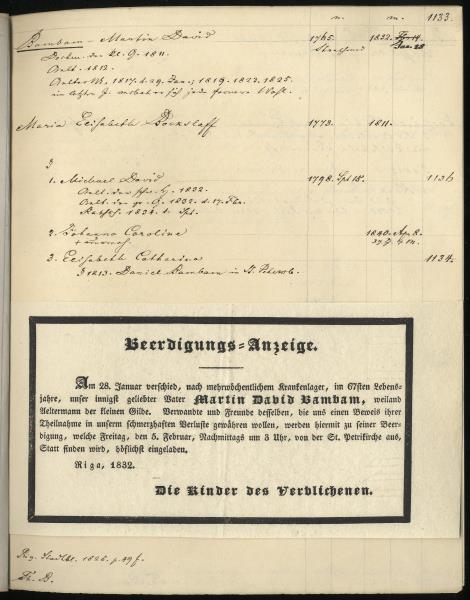 n. m. 1133.
Bambam – Martin David 1765. 1832. Jan. 28
Stralsund
Dockm. der kl. G. 1811.
Aelt. 1812.
Aelterm. 1817. d. 29. Jan.; 1819. 1822. 1825.
im letzten J. verbat er sich jede fernere Wahl.
Maria Elisabeth Bockslaff 1773. 1811.
3
1. Michael David 1798. Spt 15. 1136
Aelt. der 1832.
Aelt. der gr. G. 1832. d. 17.
1834. d. Spt.
2. Johanna Caroline 1840. Apr. 8.
37 J. 4 M.
3. Elisabeth Catharina 1134.
1813. Daniel Bambam in St. Petersb.
Beerdigungs-Anzeige.
Am 28. Januar verschied, nach mehrwöchentlichem Krankenlager, im 67sten Lebens-
jahre, unser innigst geliebter Vater Martin David Bambam, weiland
Aeltermann der kleinen Gilde. Verwandte und Freunde desselben, die uns einen Beweis ihrer
Theilnahme in unserm schmerzhaften Verluste gewähren wollen, werden hiermit zu seiner Beer-
digung, welche Freitag, den 5. Februar, Nachmittags um 3 Uhr, von der St. Petrikirche aus,
Statt finden wird, höflichst eingeladen.
Riga, 1832.
Die Kinder des Verblichenen.
Rig. Stadtbl. 1825. p. 49 f.
Th. B.